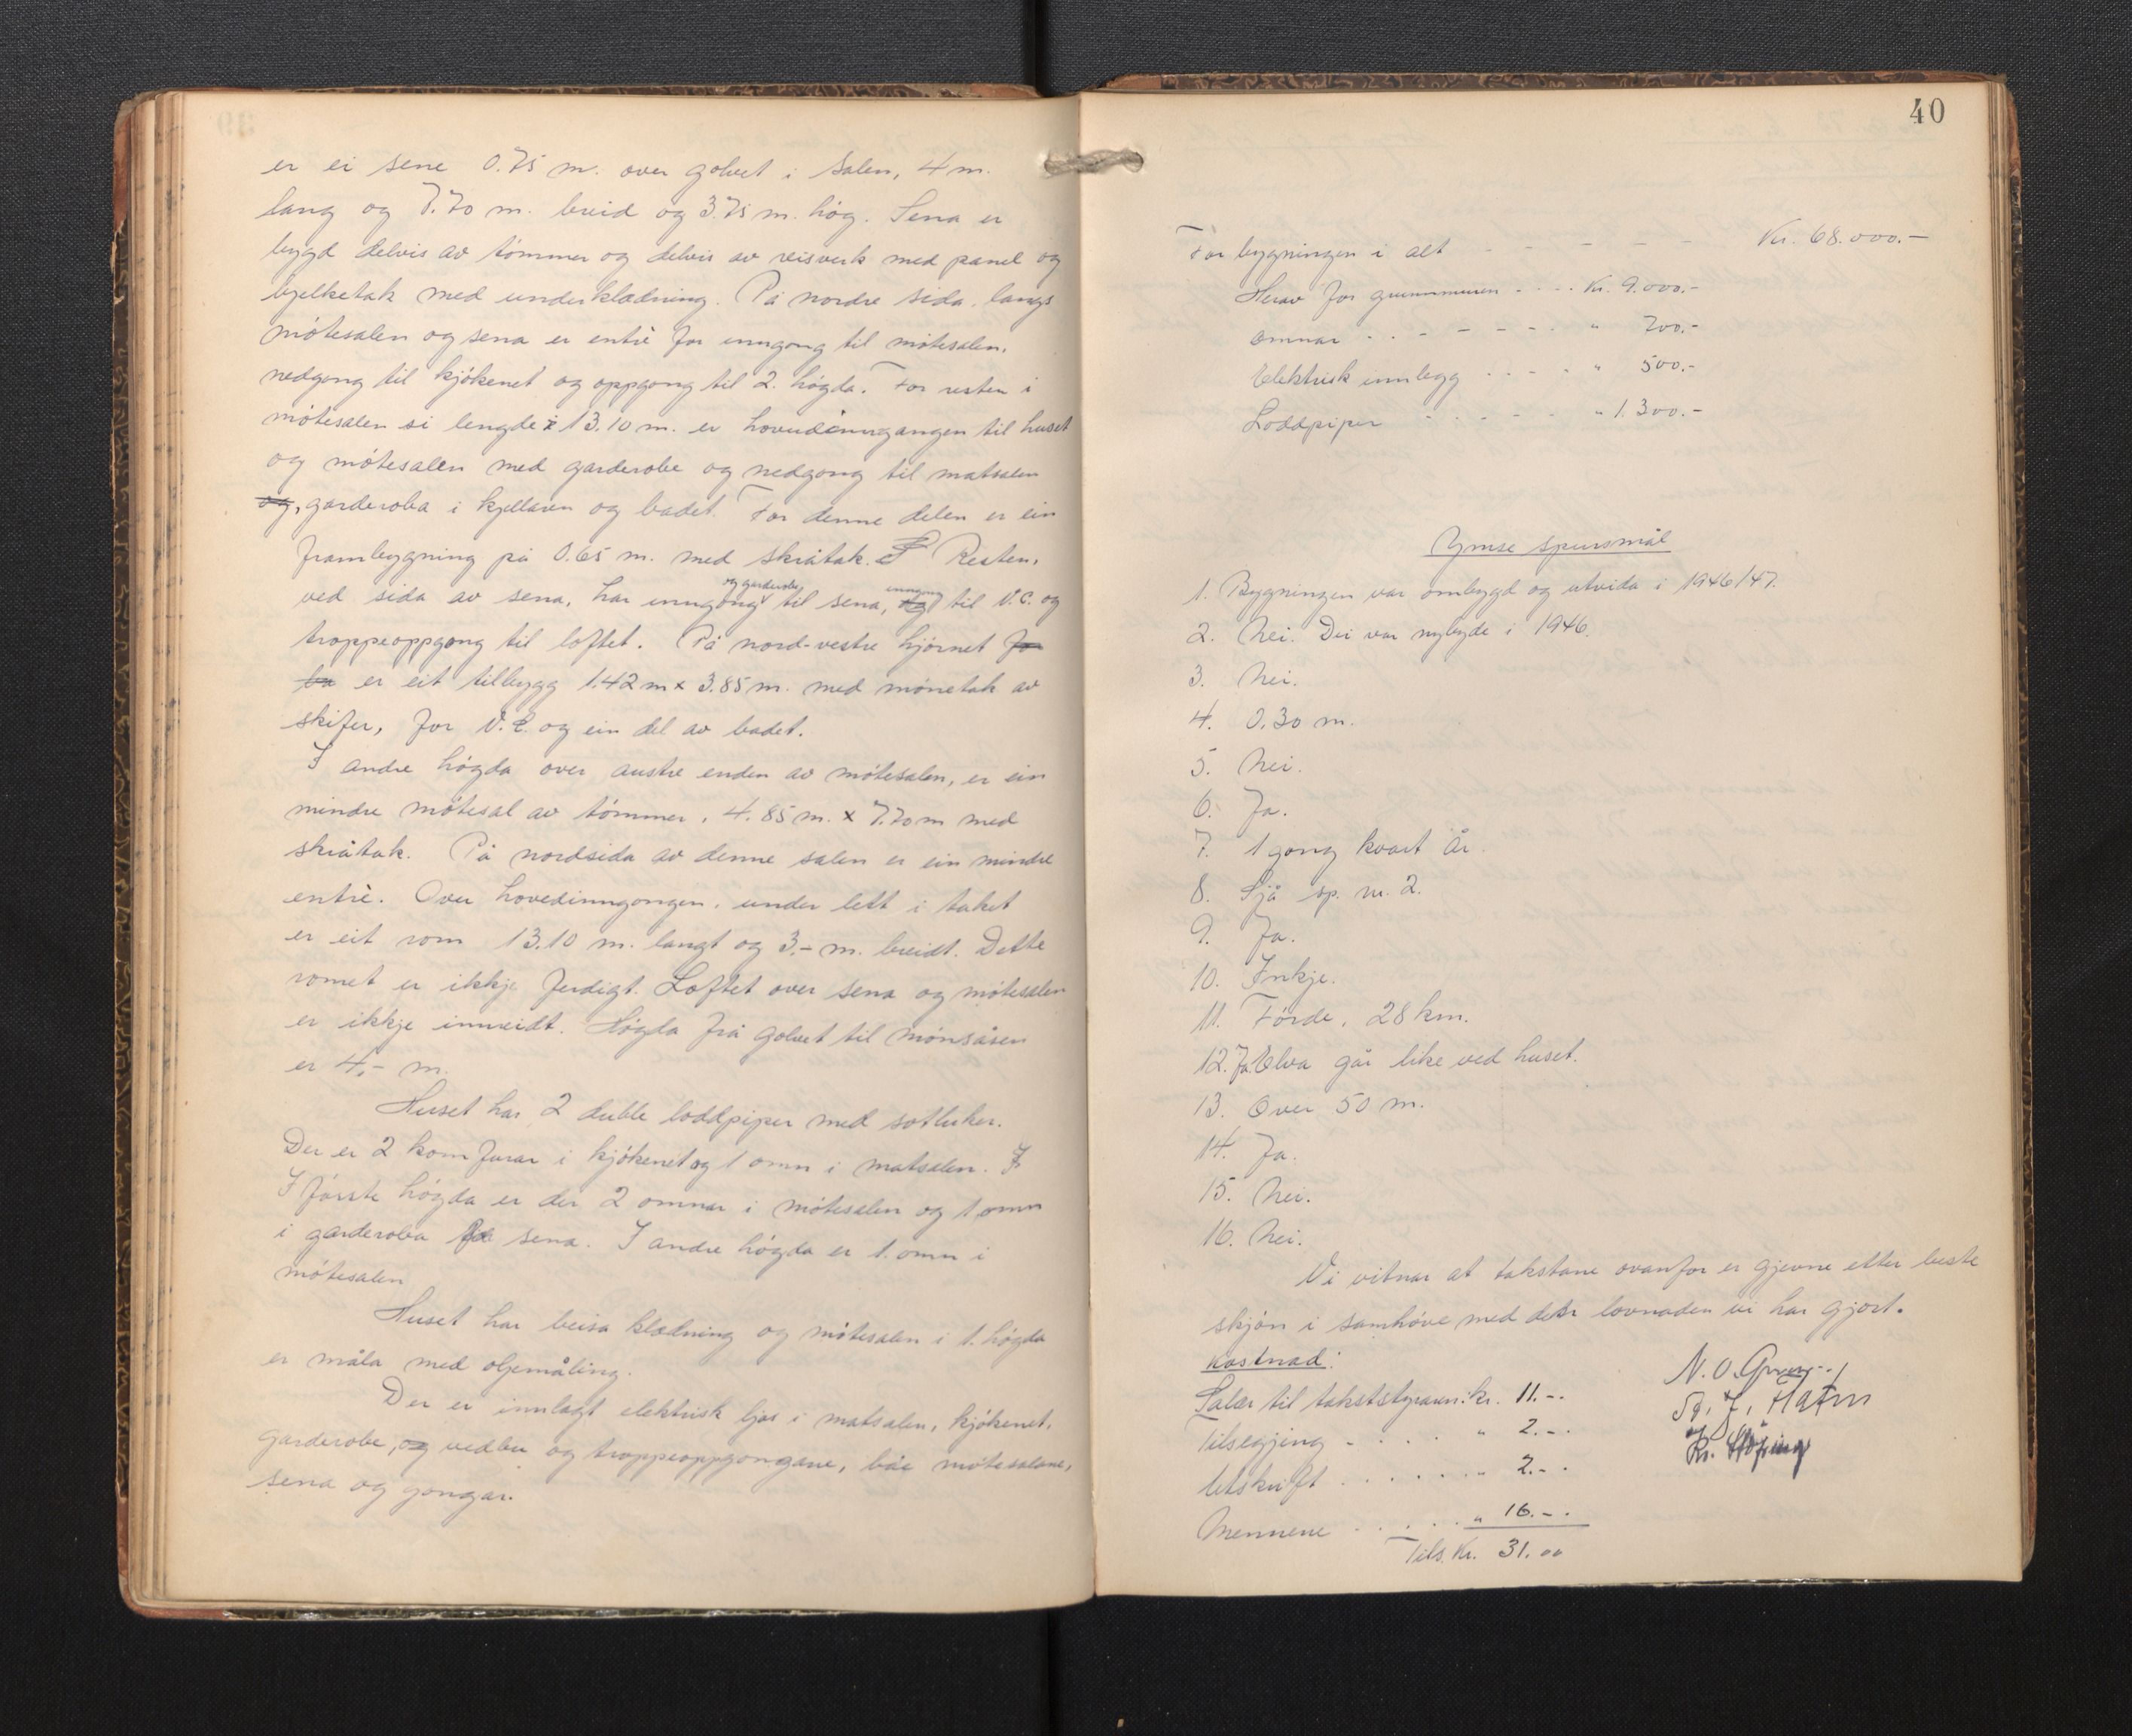 er ei sene 0.75 m. over golvet i salen, 4 m.
lang og 7.70 m. breid og 3.75 m. høg. Sena er
bygd delvis av tømmer og delvis av reisverk med panel og
bjelketak med underklædning. På nordre sida, langs
møtesalen og sena er entrè for inngong til møtesalen,
nedgong til kjøkenet og oppgong til 2. høgda. For resten i
møtesalen si lengde i 13.10 m. er hovudinngangen til huset
og møtesalen med garderobe og nedgong til matsalen
og, garderoba i kjellaren og badet. For denne delen er ein
frambygning på 0.65 m. med skråtak. Resten,
og garderobe inngong
ved sida av sena, har inngong til sena, og til V.C. og
troppeoppgong til loftet. På nord-vestre hjørnet
er eit tilbygg 1.42 m x 3.85 m. med mønetak av
skifer, for V.C. og ein del av badet.
I andre høgda over austre enden av møtesalen, er ein
mindre møtesal av tømmer, 4.85 m. x 7.70 m med
skråtak. På nordsida av denne salen er ein mindre
entrè. Over hovedinngongen, under lett i taket
er eit rom 13.10 m. langt og 3.- m. breidt. Dette
romet er ikkje ferdigt. Loftet over sena og møtesalen
er ikkje innreidt. Høgda frå golvet til mønsåsen
er 4,- m.
Huset har 2 duble loddpiper med sotluker.
Der er 2 komfurar i kjøkenet og 1 omn i matsalen. I
I første høgda er der 2 omnar i møtesalen og 1 omn
i garderoba sena. I andre høgda er 1. omn i
møtesalen
Huset har beisa klædning og møtesalen i 1. høgda
er måla med oljemåling.
Der er innlagt elektrisk ljos i matsalen, kjøkenet,
garderobe, og vedbu og troppeoppgongane, båe møtesalane,
sena og gongar.
40
For bygningen i alt - - - - - Kr. 68.000.-
Herav for grunnmuren . . . . Kr. 9.000.-
Omnar . . - - - - . " 700.-
Elektrisk innlegg . . - . " 500.-
Loddpiper . . - - . " 1.300.-
Ymse spursmål
1. Bygningen var ombygd og utvida i 1946/47.
2. Nei. Dei var nybygde i 1946.
3. Nei.
4. 0,30 m.
5. Nei.
6. Ja.
7. 1 gong kvart år.
8. Sjå sp. nr. 2.
9. Ja.
10. Inkje.
11. Førde, 28 km.
12. Ja. Elva går like ved huset.
13. Over 50 m.
14. Ja.
15. Nei.
16. Nei.
Vi vitnar at takstane ovanfor er gjevne etter beste
skjøn i samhøve med den lovnaden vi har gjort.
Kostnad:
Salær til takststyraren: kr. 11.-.
Tilsegjing - . . . " 2.-.
Utskrift . . . . . . " 2.-.
Mennene . . . . . " 16.-.
Tils. Kr. 31.00
N. O.